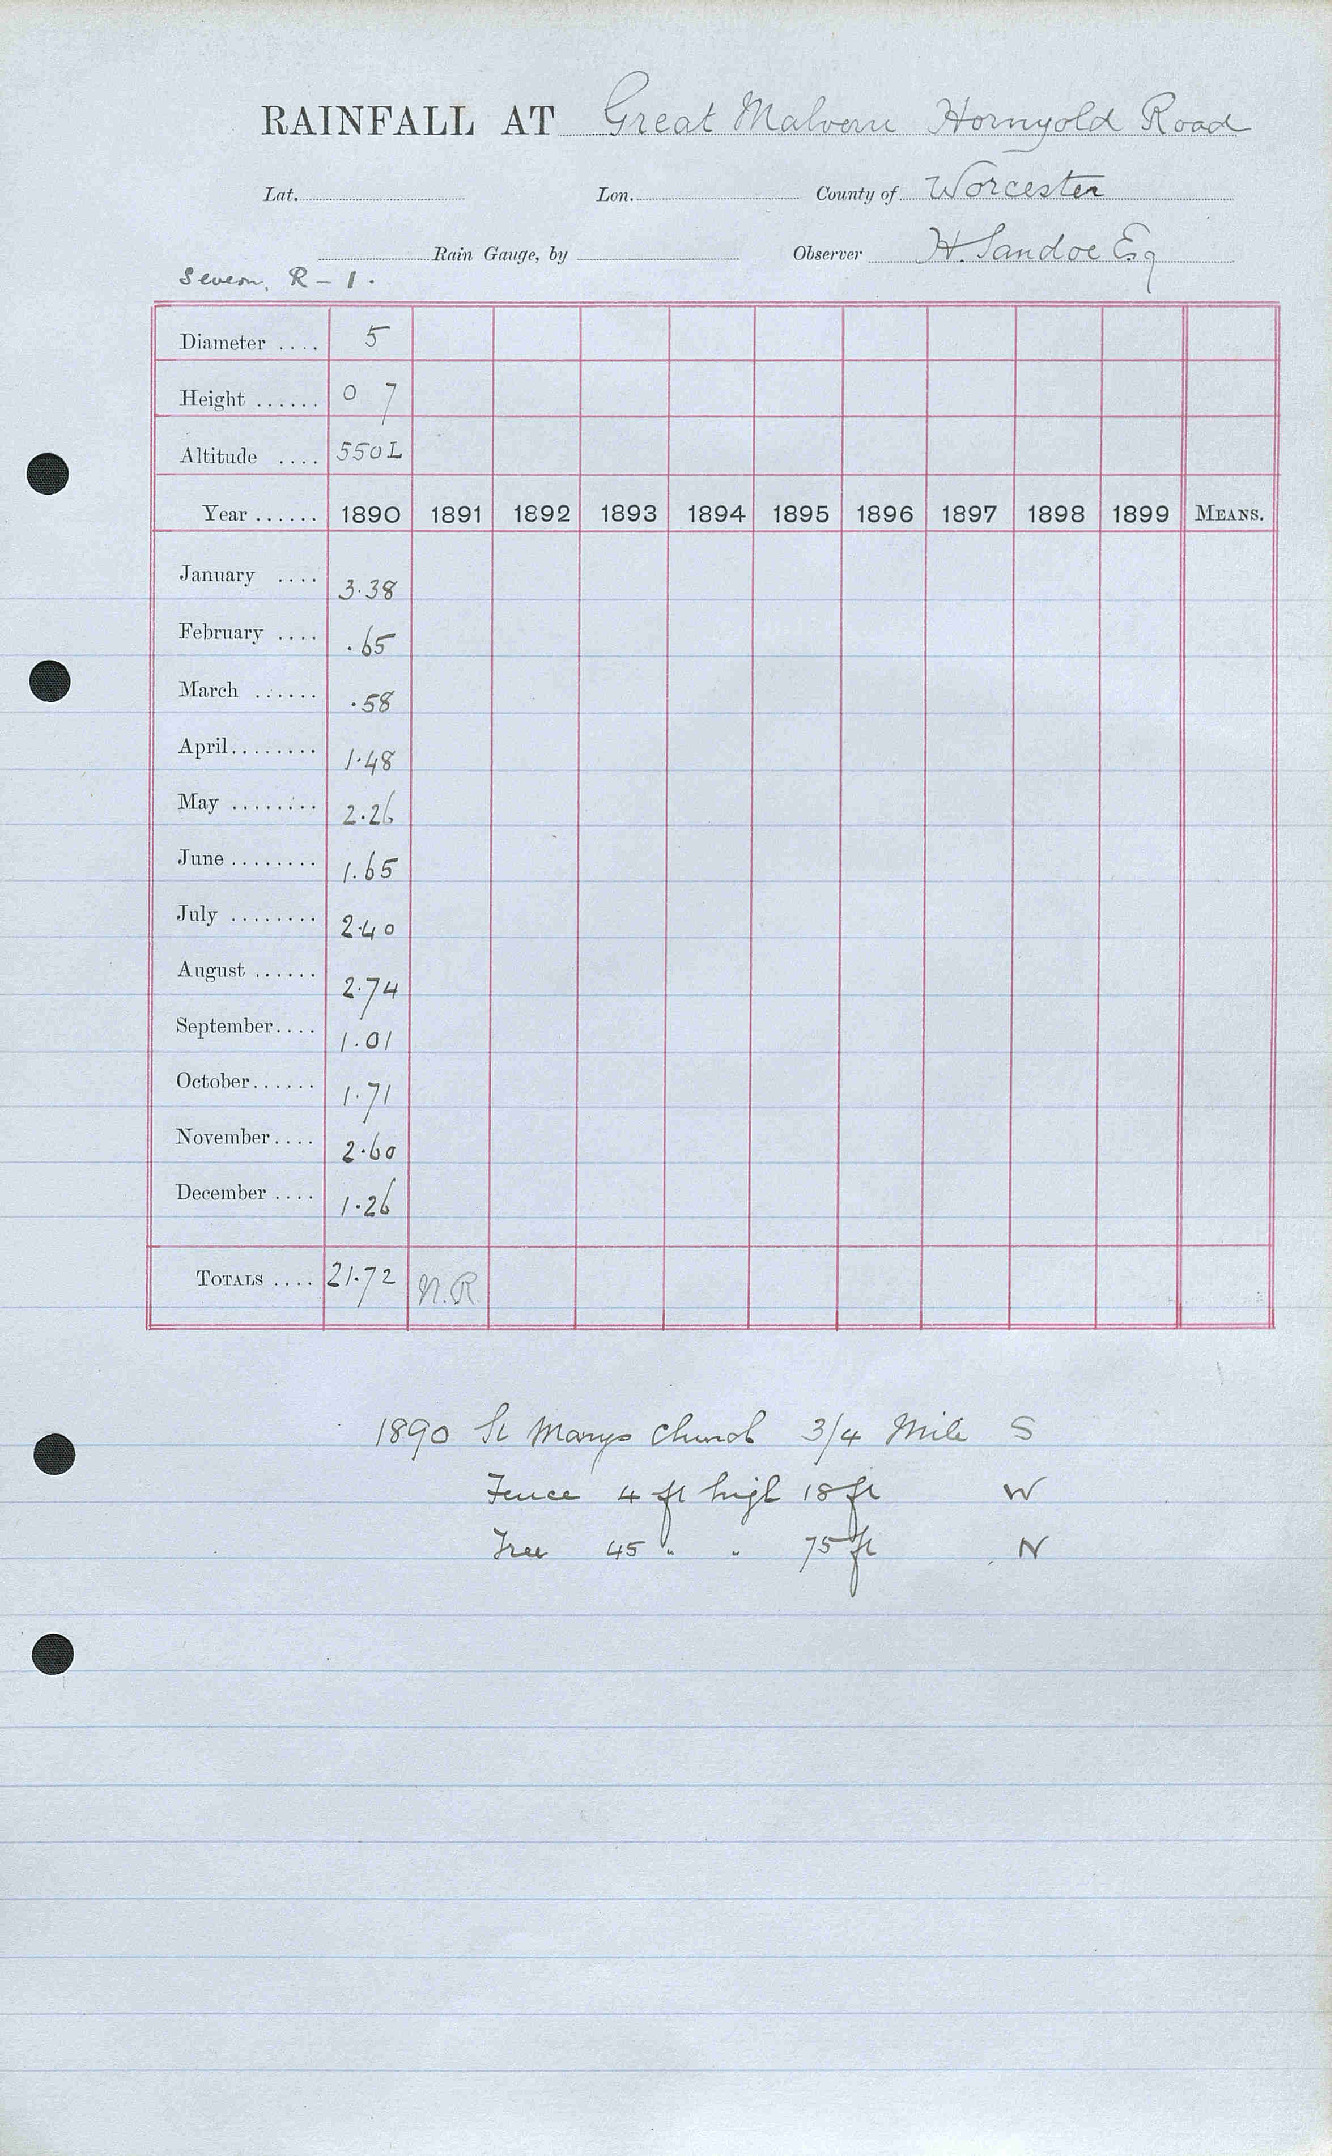 RAINFALL AT Great Malvern Hornyold Road
Lat. Lon. County of Worcester
Rain Gauge, by Observer H. Sandoe Esq
Severn, R - 1.
Diameter .... 5
Height ...... 0 7
Altitude .... 550 L
Year ...... 1890 1891 1892 1893 1894 1895 1896 1897 1898 1899 MEANS.
January .... 3.38
February .... .65
March ...... .58
April........ 1.48
May ........ 2.26
June ........ 1.65
July ........ 2.40
August ...... 2.74
September.... 1.01
October...... 1.71
November.... 2.60
December .... 1.26
TOTALS .... 21.72 N.R.
1890 St Marys Church 3/4 Mile S
Fence 4 ft high 18 ft W
Tree 45 " " 75 ft N